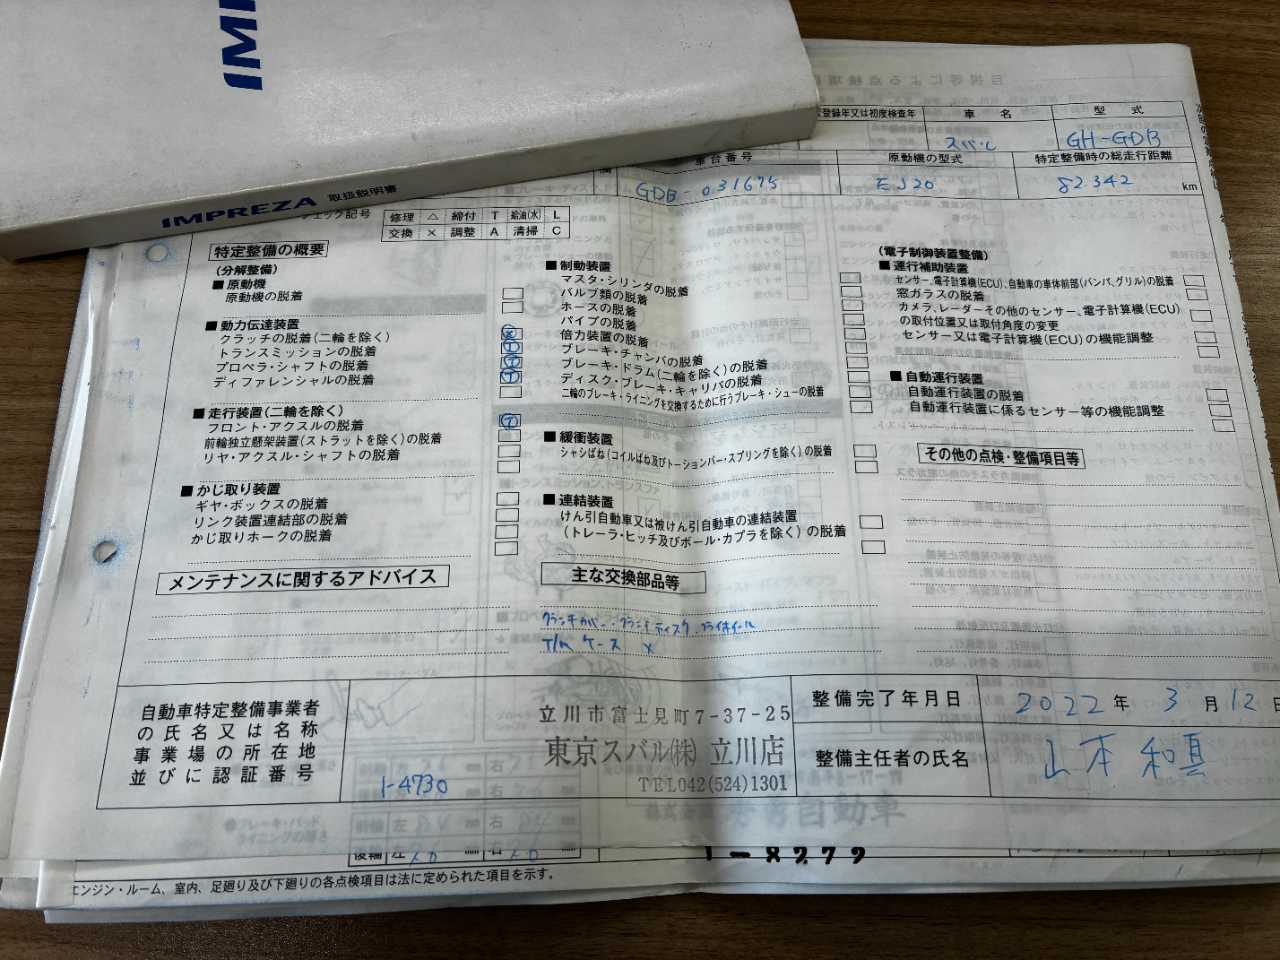 IMPREZA 取扱説明書
登録年又は初度検査年 車名 型式
スバル GH-GDB
車台番号 原動機の型式 特定整備時の総走行距離
GDB-031675 EJ20 82.342 km
チェック記号 修理 △ 締付 T 給油(水) L
交換 × 調整 A 清掃 C
特定整備の概要
(分解整備)
■原動機
原動機の脱着
■動力伝達装置
クラッチの脱着(二輪を除く) ×
トランスミッションの脱着 T
プロペラ・シャフトの脱着 T
ディファレンシャルの脱着 T
■走行装置(二輪を除く)
フロント・アクスルの脱着 T
前輪独立懸架装置(ストラットを除く)の脱着
リヤ・アクスル・シャフトの脱着
■かじ取り装置
ギヤ・ボックスの脱着
リンク装置連結部の脱着
かじ取りホークの脱着
■制動装置
マスタ・シリンダの脱着
バルブ類の脱着
ホースの脱着
パイプの脱着
倍力装置の脱着
ブレーキ・チャンバの脱着
ブレーキ・ドラム(二輪を除く)の脱着
ディスク・ブレーキ・キャリパの脱着
二輪のブレーキ・ライニングを交換するために行うブレーキ・シューの脱着
■緩衝装置
シャシばね(コイルばね及びトーションバー・スプリングを除く)の脱着
■連結装置
けん引自動車又は被けん引自動車の連結装置
(トレーラ・ヒッチ及びボール・カプラを除く)の脱着
(電子制御装置整備)
■運行補助装置
センサー、電子計算機(ECU)、自動車の車体前部(バンパ、グリル)の脱着
窓ガラスの脱着
カメラ、レーダーその他のセンサー、電子計算機(ECU)
の取付位置又は取付角度の変更
センサー又は電子計算機(ECU)の機能調整
■自動運行装置
自動運行装置の脱着
自動運行装置に係るセンサー等の機能調整
その他の点検・整備項目等
メンテナンスに関するアドバイス
主な交換部品等
クラッチカバー・クラッチディスク.フライホイール
T/M ケース ×
自動車特定整備事業者
の氏名又は名称
事業場の所在地
並びに認証番号
1-4730
立川市富士見町7-37-25
東京スバル㈱ 立川店
TEL042(524)1301
整備完了年月日 2022年 3月12日
整備主任者の氏名 山本 和真
1-8272
エンジン・ルーム、室内、足廻り及び下廻りの各点検項目は法に定められた項目を示す。